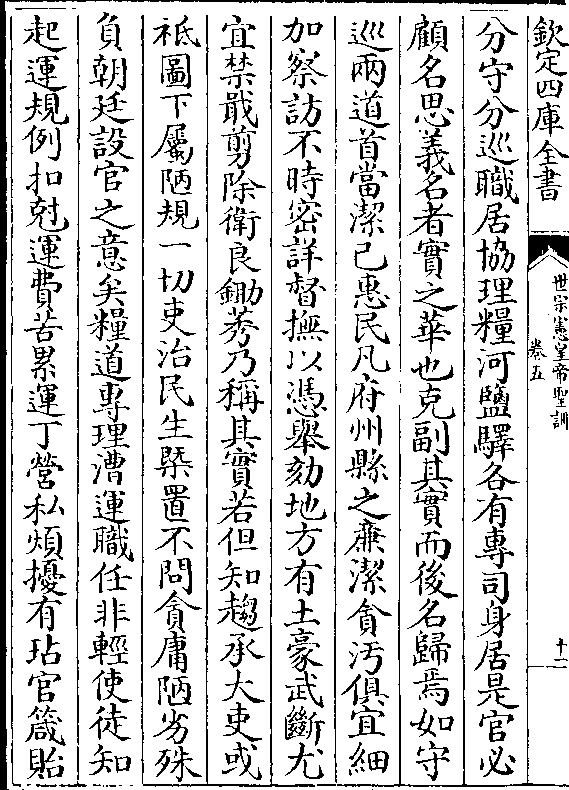 欽定四庫全書
世宗憲皇帝聖訓
卷五
十二
分守分巡職居協理糧河鹽驛各有專司身居是官必
顧名思義名者實之華也克副其實而後名歸焉如守
巡兩道首當潔己惠民凡府州縣之亷潔貪汚俱宜細
加察訪不時密詳督撫以憑舉劾地方有土豪武斷尤
宜禁戢剪除衛良鋤莠乃稱其實若但知趨承大吏或
祗圖下屬陋規一切吏治民生槩置不問貪庸陋劣殊
負朝廷設官之意矣糧道專理漕運職任非輕使徒知
起運規例扣尅運費苦累運丁營私煩擾有玷官箴貽